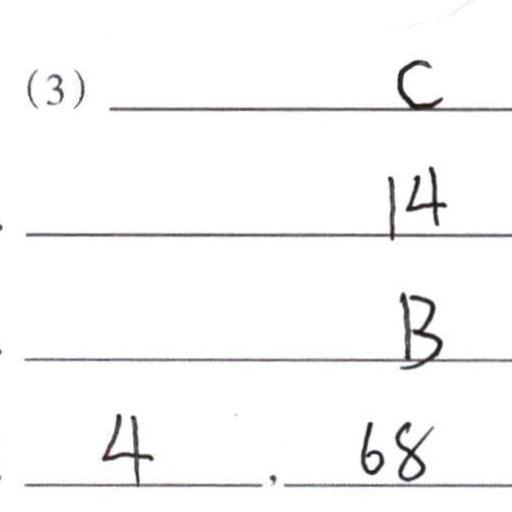 (3) C
14
B
4, 68